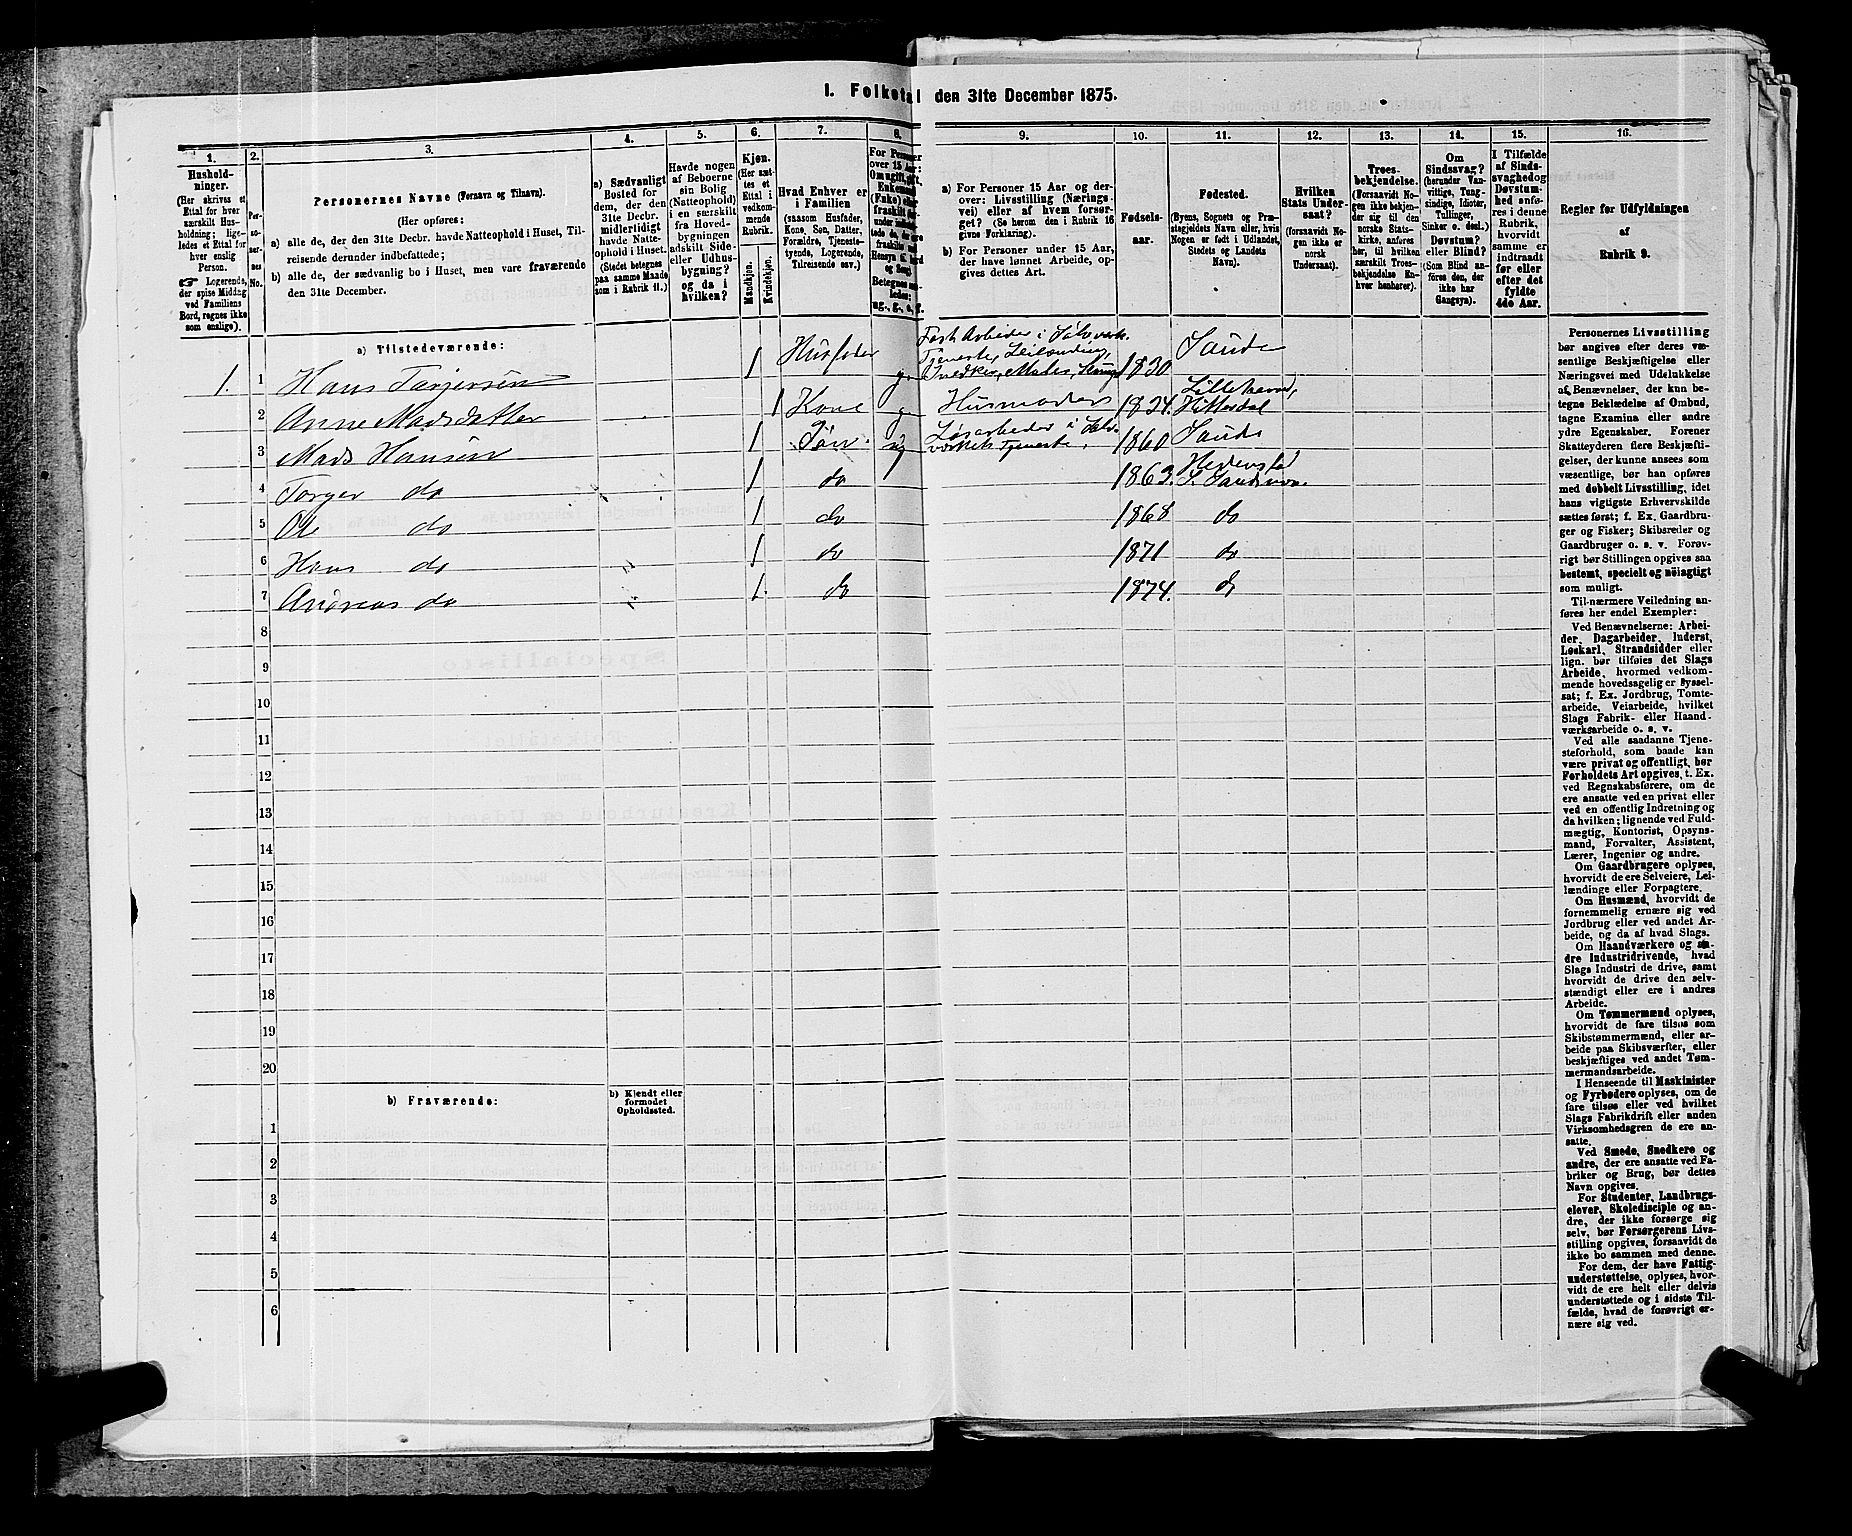 1. Folketal den 31te December 1875.
1.
Husholdninger.
(Her skrives et
Ettal for hver
særskilt Husholdning; ligeledes et Ettal for
hver enslig
Person.
Logerende,
der spise Middag
ved Familiens
Bord, regnes ikke
som enslige).
2.
Personernes
No.
3.
Personernes Navne (Fornavn og Tilnavn).
(Her opføres:
a) alle de, der den 31te Decbr. havde Natteophold i Huset, Tilreisende derunder indbefattede;
b) alle de, der sædvanlig bo i Huset, men vare fraværende
den 31te December.
4.
a) Sædvanligt
Bosted for
dem, der den
31te Decbr.
midlertidigt
havde Natteophold i Huset.
(Stedet betegnes
paa samme Maade
som i Rubrik 11.)
5.
Havde nogen
af Beboerne
sin Bolig
(Natteophold)
i en særskilt
fra Hovedbygningen
adskilt Side-
eller Udhusbygning?
og da i
hvilken?
6.
Kjøn.
(Her sættes et
Ettal i
vedkommende
Rubrik.
Mandkjøn.
Kvindekjøn.
7.
Hvad Enhver er
i Familien
(saasom Husfader,
Kone, Søn, Datter,
Forældre, Tjenestetyende, Logerende,
Tilreisende osv.)
8.
For Personer
over 15 Aar:
9.
a) For Personer 15 Aar og derover: Livsstilling (Næringsvei) eller af hvem forsørget? (Se herom den i Rubrik 16
givne Forklaring).
b) For Personer under 15 Aar,
der have lønnet Arbeide, opgives dettes Art.
10.
Fødselsaar.
11.
Fødested.
(Byens, Sognets og Præstegjeldets Navn eller, hvis
Nogen er født i Udlandet,
Stedets og Landets
Navn).
12.
Hvilken
Stats Undersaat?
(forsaavidt Nogen ikke er
norsk
Undersaat).
13.
Troesbekjendelse.
(Forsaavidt Nogen ikke bekjender sig til den
norske Statskirke, anføres
her, til hvilken
særskilt Troesbekjendelse Enhver henhører).
14.
Om
Sindssvag?
(herunder Vanvittige, Tungsindige, Idioter,
Tullinger,
Sinker o. desl.)
Døvstum?
eller Blind?
(Som Blind anføres den, der
ikke har
Gangsyn).
15.
I Tilfælde
af Sindssvaghed og
Døvstumhed anføres i denne
Rubrik,
hvorvidt
samme er
indtraadt
før eller
efter det
fyldte
4de Aar.
16.
Regler for Udfyldningen
af
Rubrik 9.
a) Tilstedeværende:
1. 1 Hans Torjersen 1 Husfader g. Fast Arbeider i Sølvverk. Tjeneste, 1830. Saude
2 Anne Madsdatter 1 Kone g Husmoder 1834. Lilleherred, Hitterdal
3 Mads Hansen 1 Søn. ug Løsarbeder i Sølvværkets Tjeneste. 1860 Saude
4 Torger do 1 do 1863. Hedenstad
5 Ole do 1 do 1868 do
6 Hans do 1 do 1871 do
7 Andreas do 1 do 1874. do
8
9
10
11
12
13
14
15
16
17
18
19
20
b) Fraværende:
b) Kjendt eller
formodet
Opholdssted.
1
2
3
4
5
6
Personernes Livsstilling
bør angives efter deres væsentlige Beskjæftigelse eller
Næringsvei med Udelukkelse
af Benævnelser, der kun betegne Beklædelse af Ombud,
tagne Examina eller andre
ydre Egenskaber. Forener
Skatteyderen flere Beskjæftigelser, der kunne ansees som
væsentlige, bør han opføres
med dobbelt Livsstilling, idet
hans vigtigste Erhvervskilde
sættes først; f. Ex. Gaardbruger og Fisker; Skibsreder og
Gaardbruger o. s. v. Forøvrigt bør Stillingen opgives saa
bestemt, specielt og nöiagtigt
som muligt.
Til nærmere Veiledning anføres her endel Exempler:
Ved Benævnelserne: Arbeider, Dagarbeider, Inderst,
Løskarl, Strandsidder eller
lign. bør tilføies det Slags
Arbeide, hvormed vedkommende hovedsagelig er sysselsat; f. Ex. Jordbrug, Tomtearbeide, Veiarbeide, hvilket
Slags Fabrik- eller Haandværksarbeide o. s. v.
Ved alle saadanne Tjenesteforhold, som baade kan
være privat og offentligt, bør
Forholdets Art opgives, t. Ex.
ved Regnskabsførere, om de
ere ansatte ved en privat eller
ved en offentlig Indretning og
da hvilken; lignende ved Fuldmægtig, Kontorist, Opsynsmand, Forvalter, Assistent,
Lærer, Ingeniør og andre.
Om Gaardbrugere oplyses,
hvorvidt de ere Selveiere, Leilændinge eller Forpagtere.
Om Husmænd, hvorvidt de
fornemmelig ernære sig ved
Jordbrug eller ved andet Arbeide, og da af hvad Slags.
Om Haandværkere og andre Industridrivende, hvad
Slags Industri de drive, samt
hvorvidt de drive den selvstændigt eller ere i andres
Arbeide.
Om Tømmermænd oplyses,
hvorvidt de fare tilsøs som
Skibstømmermænd, eller arbeide paa Skibsværfter, eller
beskjæftiges ved andet Tømmermandsarbeide.
I Henseende til Maskinister
og Fyrbødere oplyses, om de
fare tilsøs eller ved hvilket
Slags Fabrikdrift eller anden
Virksomhedsgren de ere ansatte.
Ved Smede, Snedkere og
andre, der ere ansatte ved Fabriker og Brug, bør dettes
Navn opgives.
For Studenter, Landbrugselever, Skoledisciple og andre, der ikke forsørge sig
selv, bør Forsørgerens Livsstilling opgives, forsaavidt de
ikke bo sammen med denne.
For dem, der have Fattigunderstøttelse, oplyses, hvorvidt de ere helt eller delvis
understøttede og i sidste Tilfælde, hvad de forøvrigt ernære sig ved.